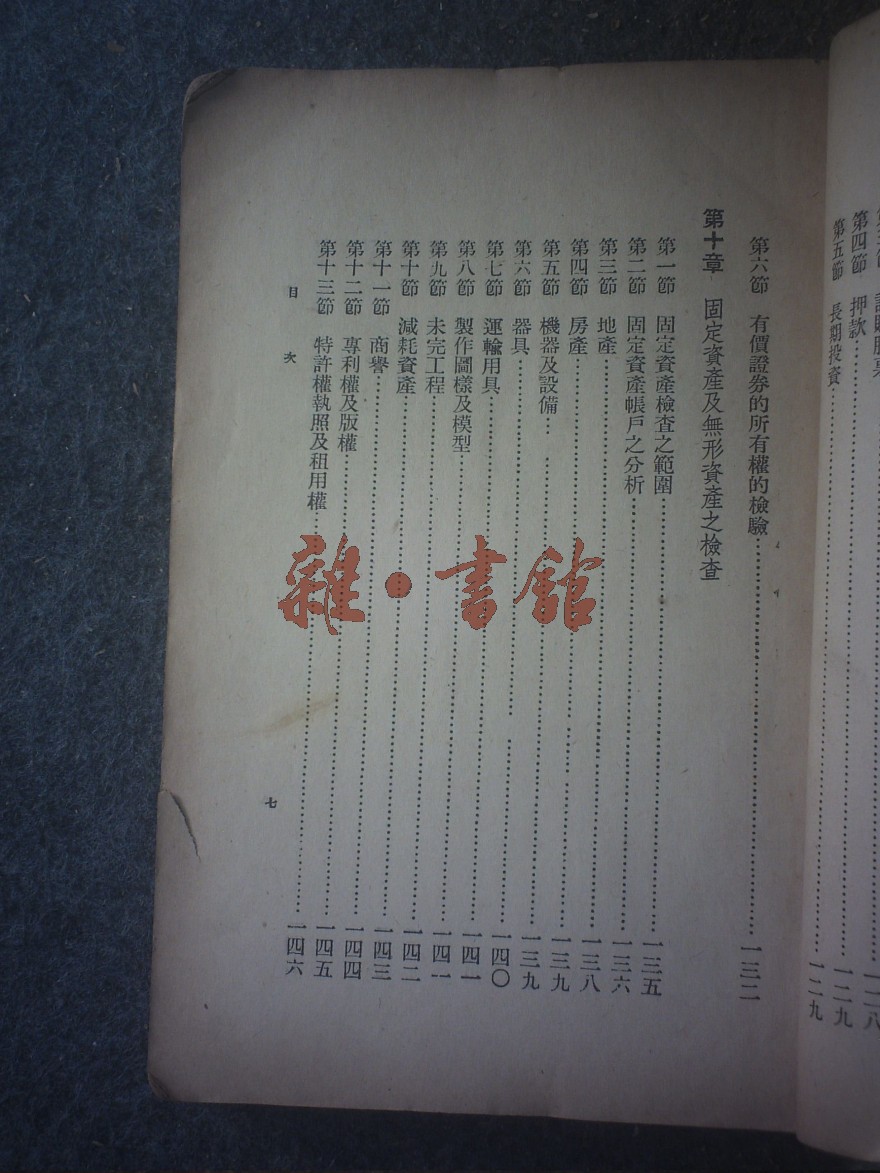 第四節 押款
一二九
第五節 長期投資
一二九
第六節 有價證券的所有權的檢驗
一三二
第十章 固定資產及無形資產之檢查
第一節 固定資產檢查之範圍
一三五
第二節 固定資產帳戶之分析
一三六
第三節 地產
一三八
第四節 房產
一三九
第五節 機器及設備
一三九
第六節 器具
一四〇
第七節 運輸用具
一四一
第八節 製作圖樣及模型
一四一
第九節 未完工程
一四二
第十節 減耗資產
一四三
第十一節 商譽
一四四
第十二節 專利權及版權
一四五
第十三節 特許權執照及租用權
一四六
目次
七
雜·書館